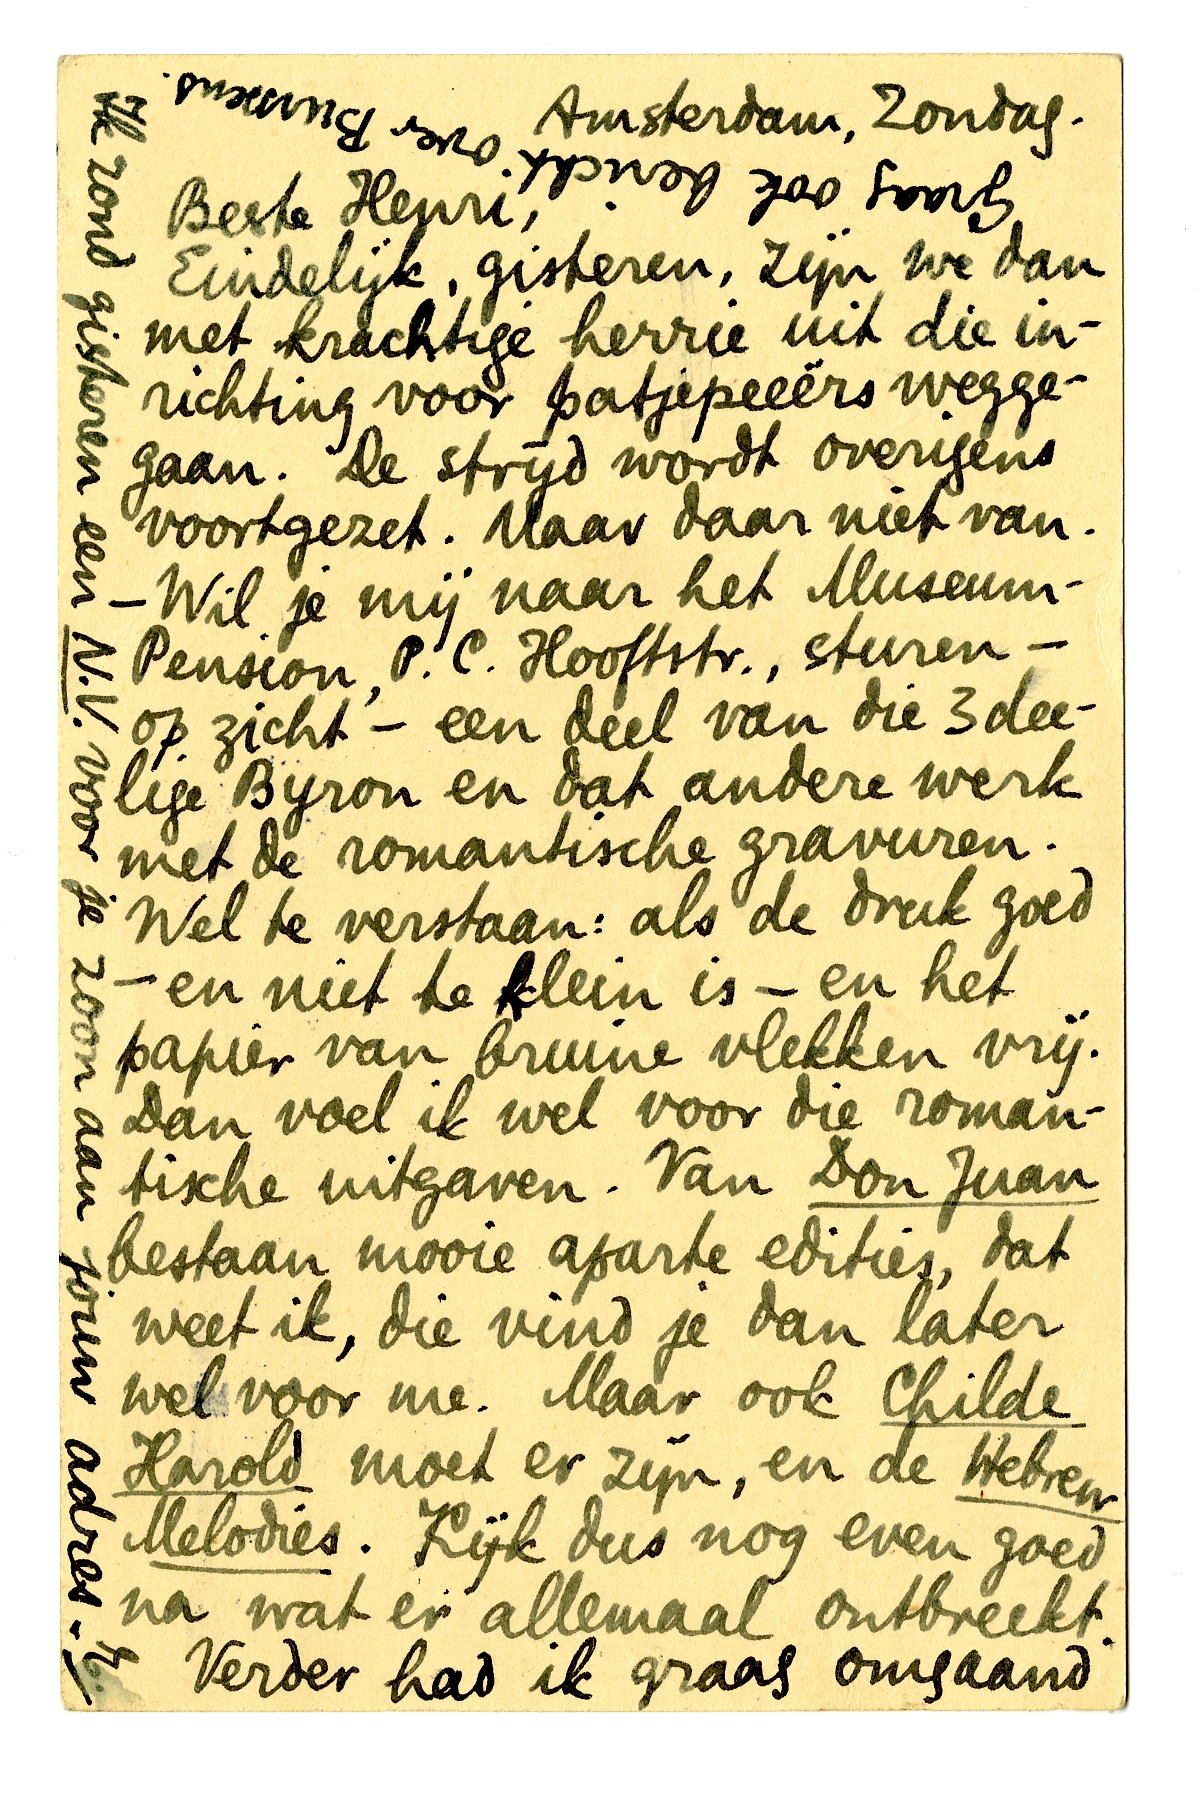 Amsterdam, Zondag.
Beste Henri,
Eindelijk, gisteren, zijn we dan
met krachtige herrie uit die in-
richting voor patjepeeërs wegge-
gaan. De strijd wordt overigens
voortgezet. Maar daar niet van.
– Wil je mij naar het Museum-
Pension, P.C. Hooftstr., sturen –
op zicht – een deel van die 3 dee-
lige Byron en dat andere werk
met de romantische gravuren.
Wel te verstaan: als de druk goed
– en niet te klein is – en het
papier van bruine vlekken vrij.
Dan voel ik wel voor die roman-
tische uitgaven. Van Don Juan
bestaan mooie aparte edities, dat
weet ik, die vind je dan later
wel voor me. Maar ook Childe
Harold moet er zijn, en de Hebrew
Melodies. Kijk dus nog even goed
na wat er allemaal ontbreekt.
Verder had ik graag omgaand
Ik zond gisteren een N.V. voor je zoon aan jouw adres. –
Graag ook bericht over Bursens.